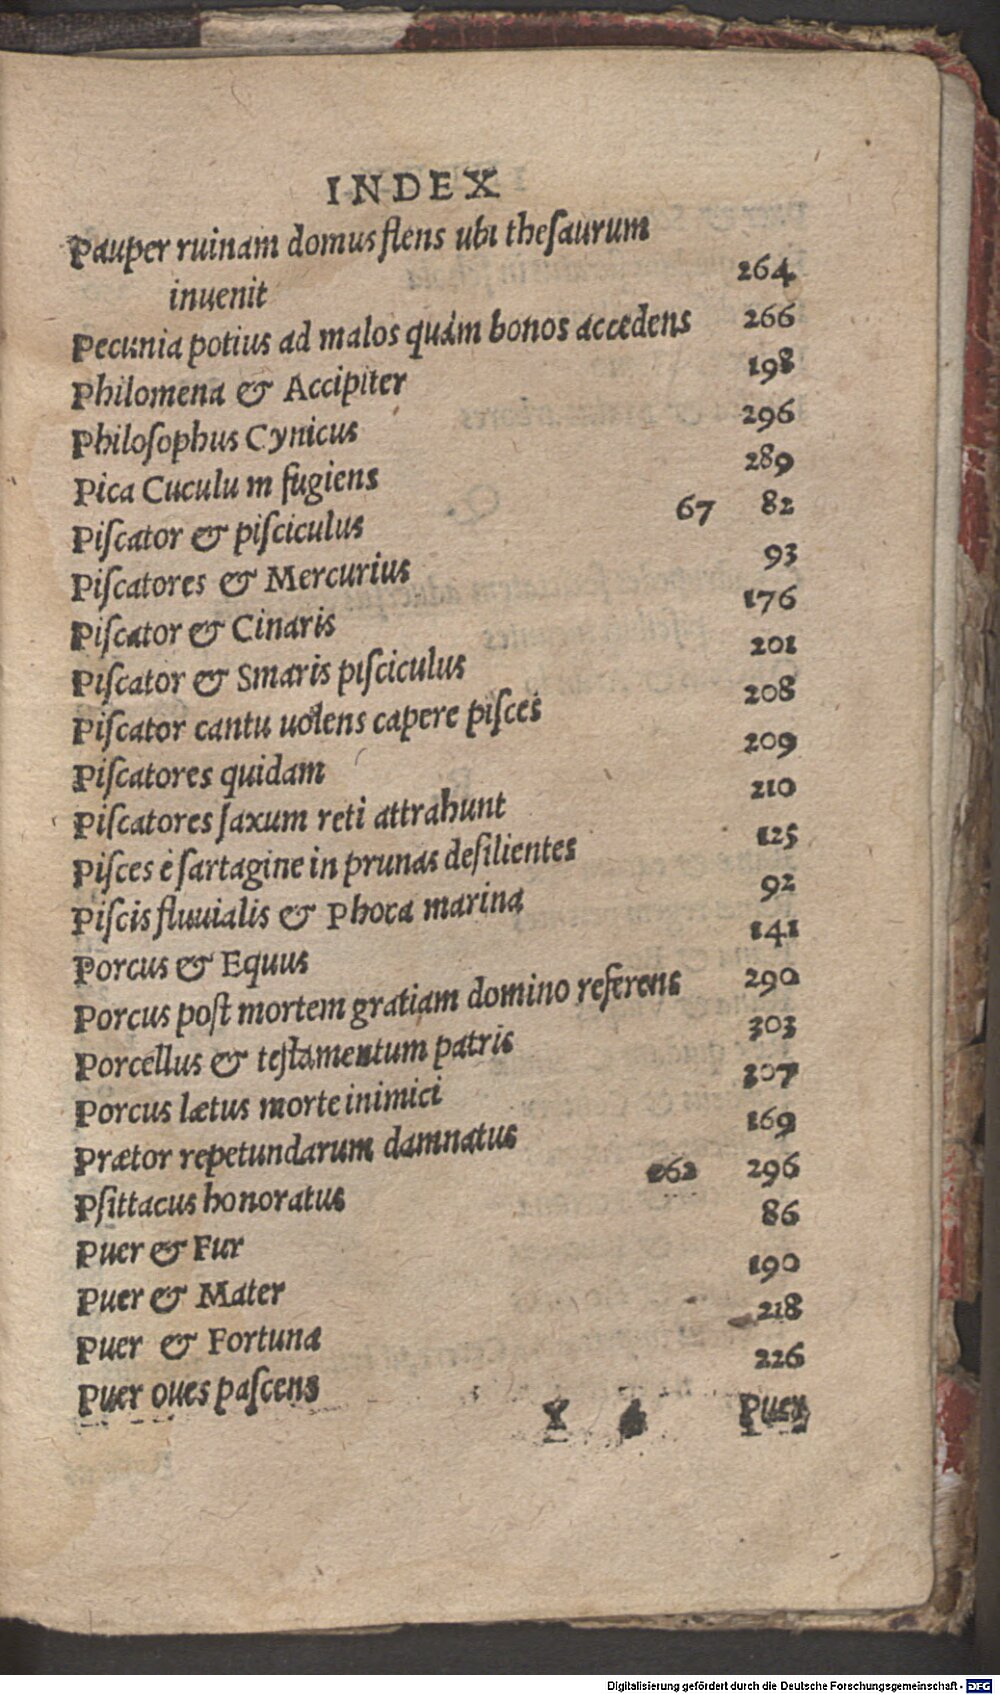 INDEX
Pauper ruinam domus flens ubi theſaurum
inuenit 264
Pecunia potius ad malos quàm bonos accedens 266
Philomena & Accipiter 198
Philoſophus Cynicus 296
Pica Cuculu m fugiens 289
Piſcator & piſciculus 67 82
Piſcatores & Mercurius 93
Piſcator & Cinaris 176
Piſcator & Smaris piſciculus 201
Piſcator cantu uolens capere piſces 208
Piſcatores quidam 209
Piſcatores ſaxum reti attrahunt 210
Piſces è ſartagine in prunas deſilientes 125
Piſcis fluuialis & Phoca marina 92
Porcus & Equus 141
Porcus poſt mortem gratiam domino referens 290
Porcellus & teſtamentum patris 303
Porcus lætus morte inimici 307
Prætor repetundarum damnatus 169
Pſittacus honoratus 262 296
Puer & Fur 86
Puer & Mater 190
Puer & Fortuna 218
Puer oues paſcens 226
Puer
Digitalisierung gefördert durch die Deutsche Forschungsgemeinschaft - DFG